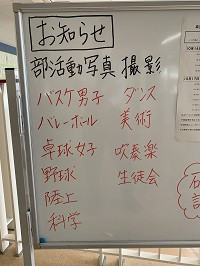 お知らせ
部活動写真撮影
バスケ男子 ダンス
バレーボール 美術
卓球女子 吹奏楽
野球 生徒会
陸上
科学